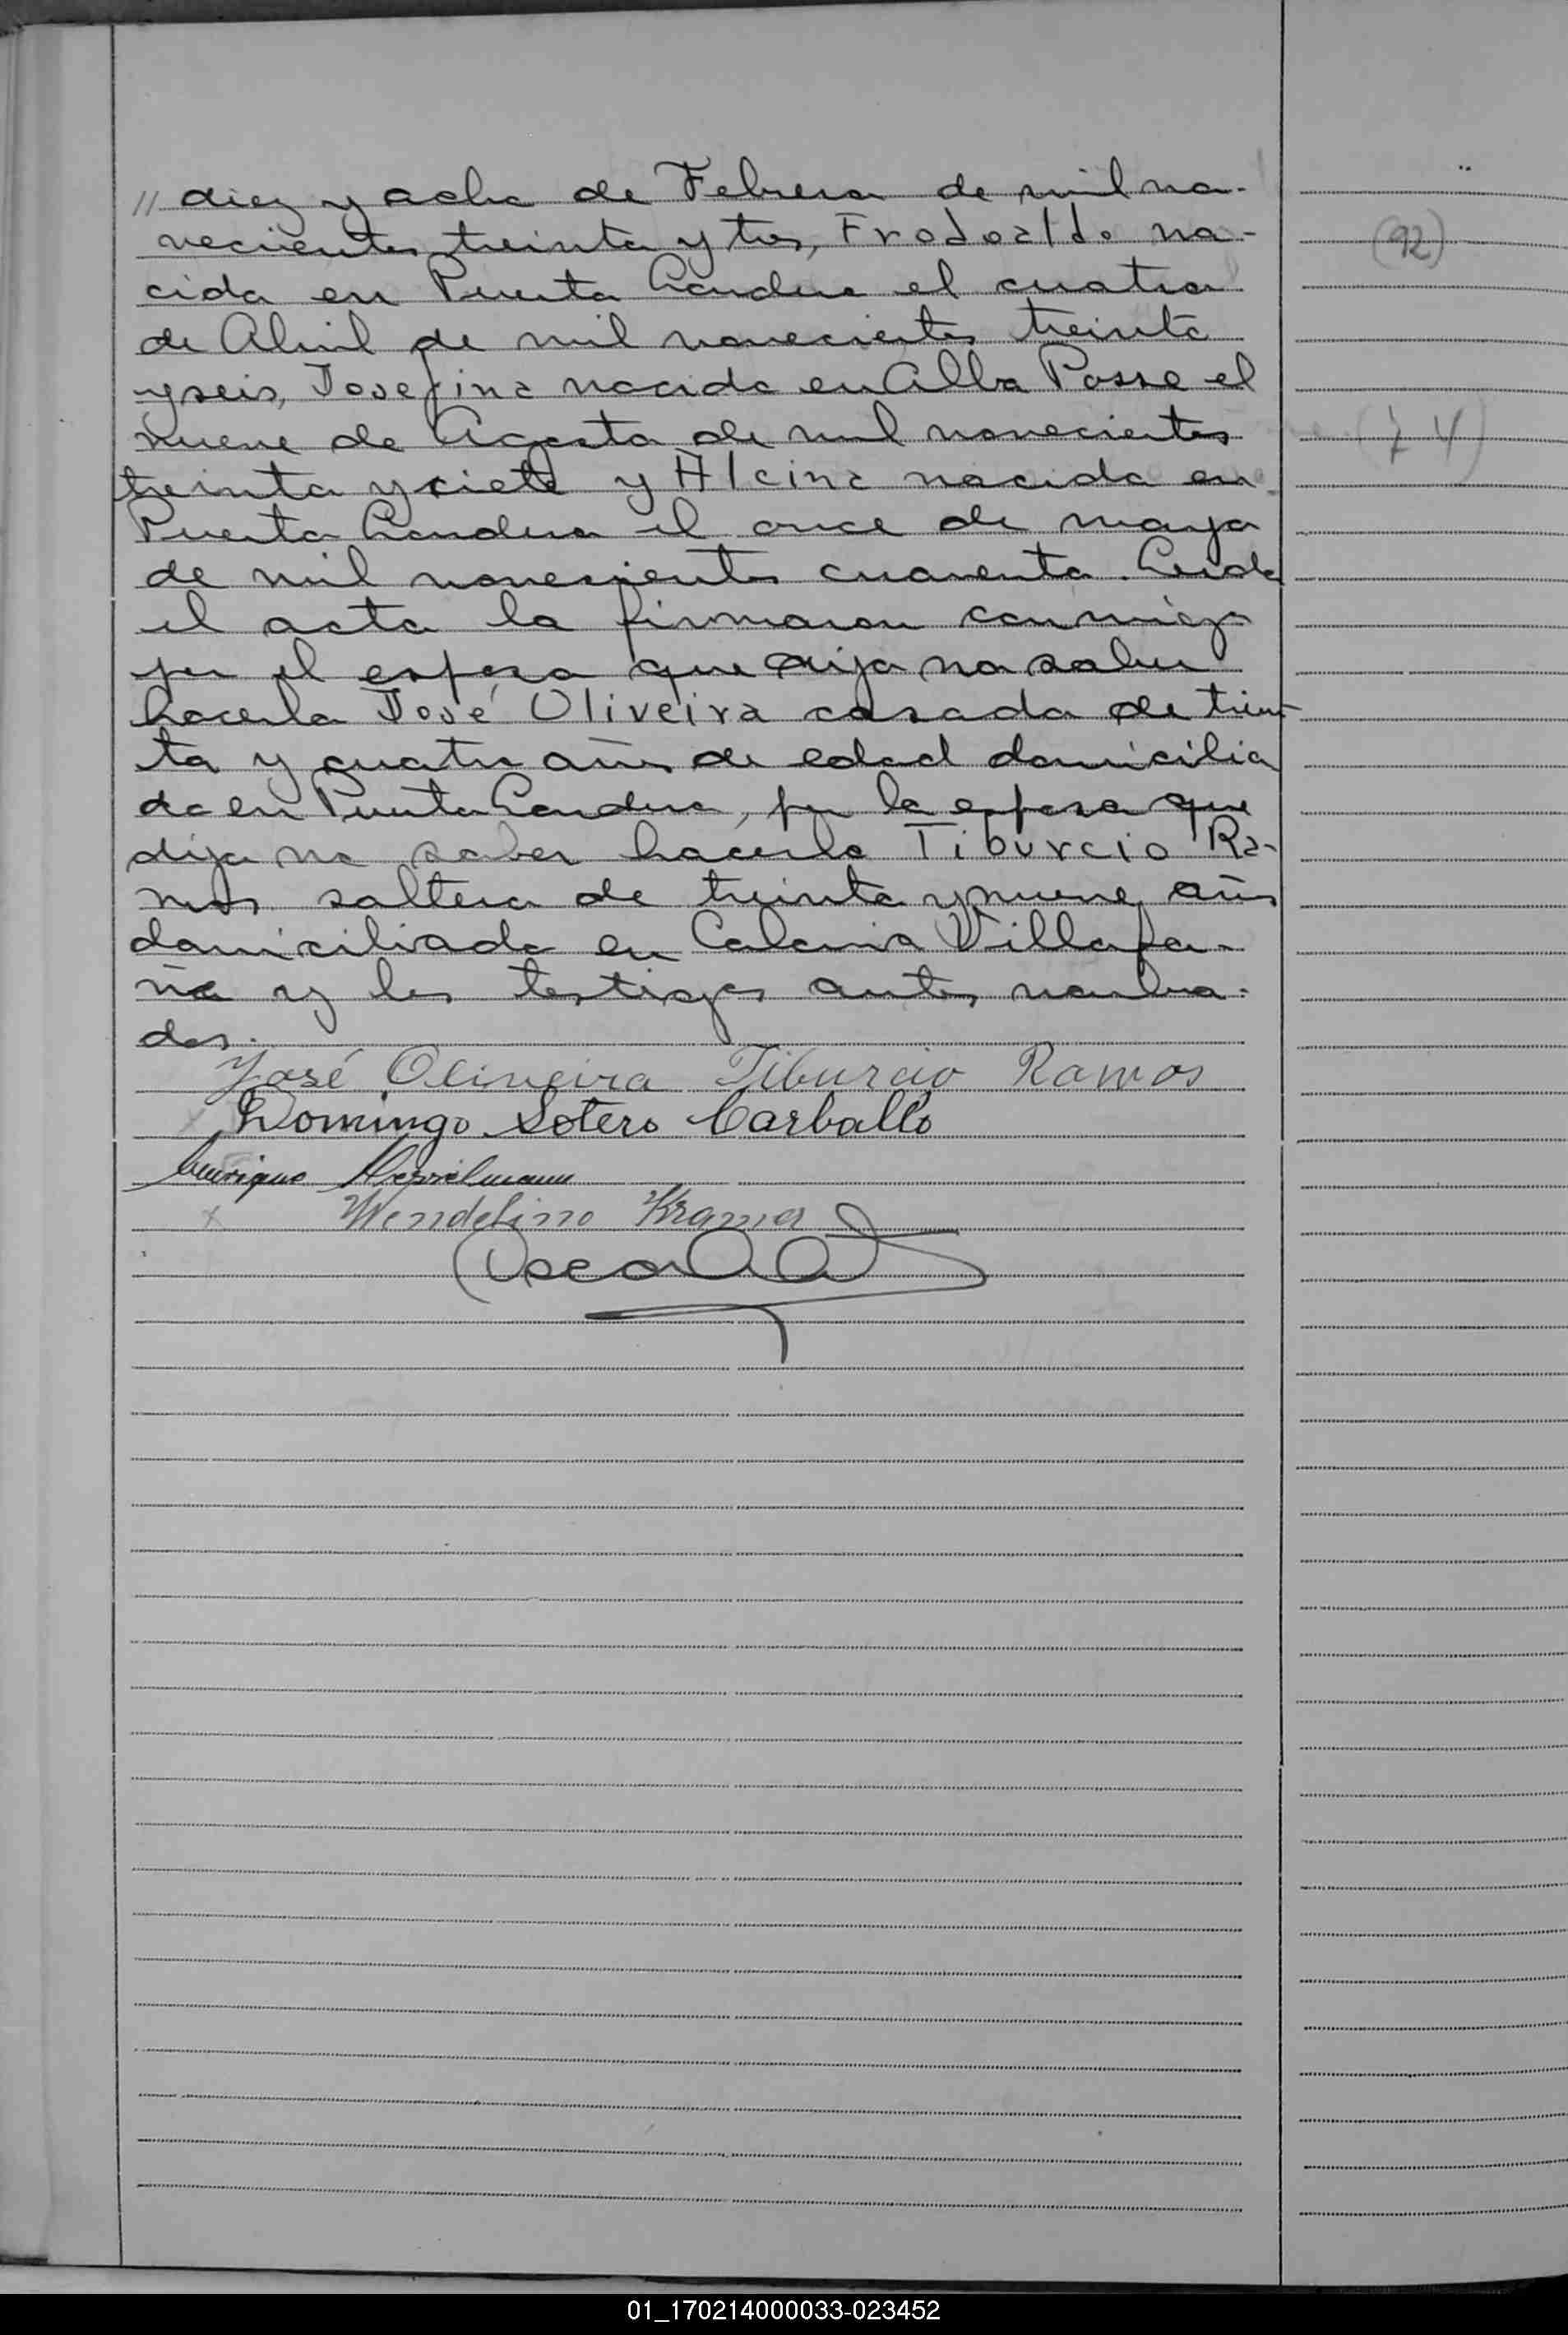 // diez y ocho de Febrero de mil no-
vecientos treinta y tres, Frodoaldo na-
cido en Puerto Londero el cuatro
de Abril de mil novecientos treinta
y seis, Josefina nacida en Alba Posse el
nueve de Agosto de mil novecientos
treinta y siete y Alcina nacida en
Puerto Londero el once de mayo
de mil novecientos cuarenta. Leida
el acta la firmaron conmigo
por el esposo que dijo no saber
hacerlo José Oliveira casado de trein-
ta y cuatro años de edad domicilia
do en Puerto Londero, por la esposa que
dijo no saber hacerlo Tiburcio Ra-
mos soltero de treinta y nueve años
domiciliado en Colonia Villafa-
ñe y los testigos antes nombra-
dos.
José Oliveira Tiburcio Ramos
Domingo Sotero Carballo
Enrique
Wendelino Kramer
Oscar
(92)
01_170214000033-023452